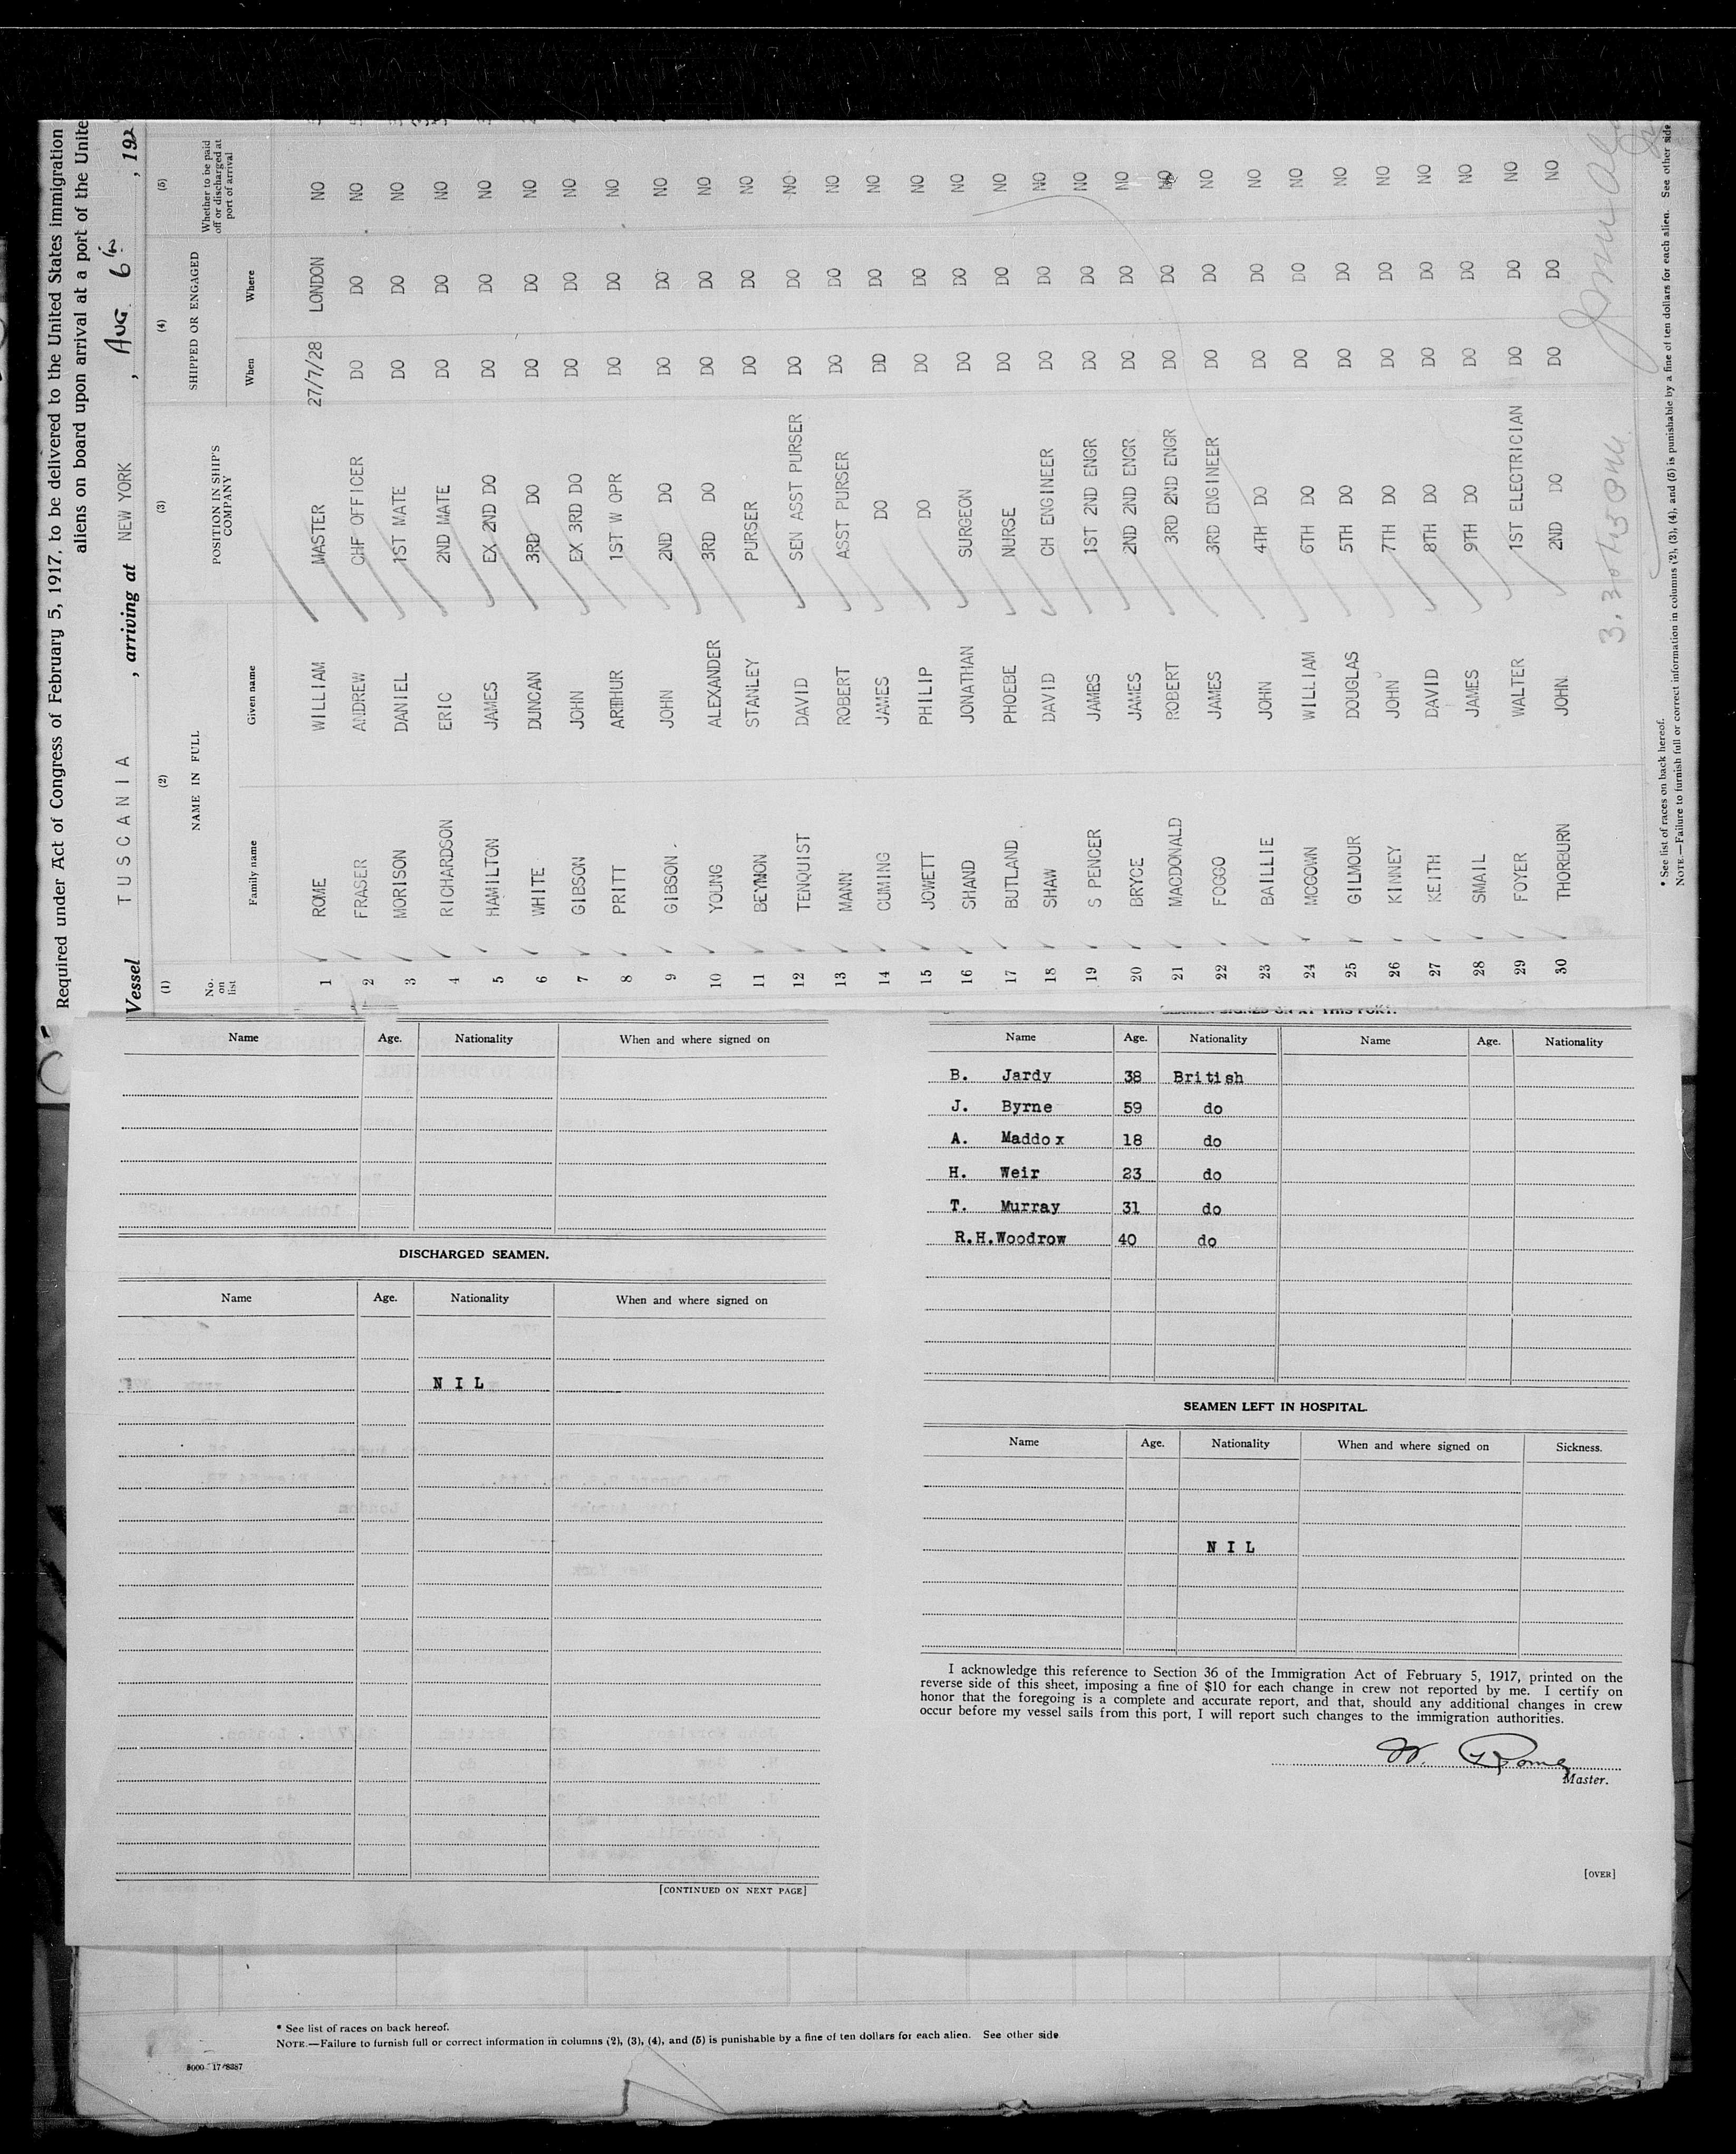 Required under Act of Congress of February 5, 1917, to be delivered to the United States immigration
aliens on board upon arrival at a port of the Unite
Vessel TUSCANIA , arriving at NEW YORK , AUG. 6th , 192
(1) (2) (3) (4) (5)
No. on list NAME IN FULL POSITION IN SHIP'S COMPANY SHIPPED OR ENGAGED Whether to be paid off or discharged at port of arrival
Family name Given name When Where
1 ROME WILLIAM MASTER 27/7/28 LONDON NO
2 FRASER ANDREW CHF OFFICER DO DO NO
3 MORISON DANIEL 1ST MATE DO DO NO
4 RICHARDSON ERIC 2ND MATE DO DO NO
5 HAMILTON JAMES EX 2ND DO DO DO NO
6 WHITE DUNCAN 3RD DO DO DO NO
7 GIBSON JOHN EX 3RD DO DO DO NO
8 PRITT ARTHUR 1ST W OPR DO DO NO
9 GIBSON JOHN 2ND DO DO DO NO
10 YOUNG ALEXANDER 3RD DO DO DO NO
11 BEYNON STANLEY PURSER DO DO NO
12 TENQUIST DAVID SEN ASST PURSER DO DO NO
13 MANN ROBERT ASST PURSER DO DO NO
14 CUMING JAMES DO DO DO NO
15 JOWETT PHILIP DO DO DO NO
16 SHAND JONATHAN SURGEON DO DO NO
17 BUTLAND PHOEBE NURSE DO DO NO
18 SHAW DAVID CH ENGINEER DO DO NO
19 S PENCER JAMES 1ST 2ND ENGR DO DO NO
20 BRYCE JAMES 2ND 2ND ENGR DO DO NO
21 MACDONALD ROBERT 3RD 2ND ENGR DO DO NO
22 FOGGO JAMES 3RD ENGINEER DO DO NO
23 BAILLIE JOHN 4TH DO DO DO NO
24 MCGOWN WILLIAM 6TH DO DO DO NO
25 GILMOUR DOUGLAS 5TH DO DO DO NO
26 KINNEY JOHN 7TH DO DO DO NO
27 KEITH DAVID 8TH DO DO DO NO
28 SMAIL JAMES 9TH DO DO DO NO
29 FOYER WALTER 1ST ELECTRICIAN DO DO NO
30 THORBURN JOHN 2ND DO DO DO NO
* See list of races on back hereof.
NOTE.—Failure to furnish full or correct information in columns (2), (3), (4), and (5) is punishable by a fine of ten dollars for each alien. See other side
Name Age. Nationality When and where signed on
DISCHARGED SEAMEN.
Name Age. Nationality When and where signed on
N I L
[CONTINUED ON NEXT PAGE]
SEAMEN SIGNED ON AT THIS PORT.
Name Age. Nationality Name Age. Nationality
B. Jardy 38 British
J. Byrne 59 do
A. Maddox 18 do
H. Weir 23 do
T. Murray 31 do
R.H.Woodrow 40 do
SEAMEN LEFT IN HOSPITAL.
Name Age. Nationality When and where signed on Sickness.
N I L
I acknowledge this reference to Section 36 of the Immigration Act of February 5, 1917, printed on the
reverse side of this sheet, imposing a fine of $10 for each change in crew not reported by me. I certify on
honor that the foregoing is a complete and accurate report, and that, should any additional changes in crew
occur before my vessel sails from this port, I will report such changes to the immigration authorities.
W. Rome
Master.
[OVER]
* See list of races on back hereof.
NOTE.—Failure to furnish full or correct information in columns (2), (3), (4), and (5) is punishable by a fine of ten dollars for each alien. See other side